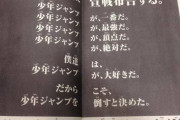 宣戦布告する。
少年ジャンプ が、一番だ。
少年ジャンプ が、最強だ。
少年ジャンプ が、頂点だ。
少年ジャンプ が、絶対だ。
僕達 は、
少年ジャンプ が、大好きだ。
だから こそ、
少年ジャンプを 倒すと決めた。